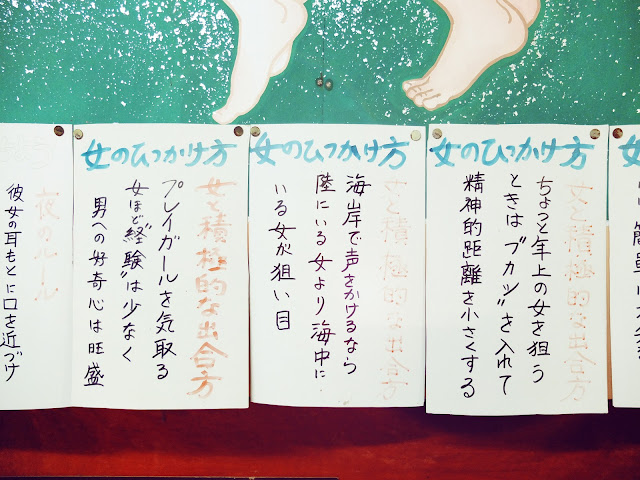 簡単に
女のひっかけ方
女と積極的な出合方
ちょっと年上の女を狙う
ときは"ブカツ"を入れて
精神的距離を小さくする
女のひっかけ方
女と積極的な出合方
海岸で声をかけるなら
陸にいる女より海中に
いる女が狙い目
女のひっかけ方
女と積極的な出合方
プレイガールを気取る
女ほど"経験"は少なく
男への好奇心は旺盛
夜のルール
彼女の耳もとに口を近づけ